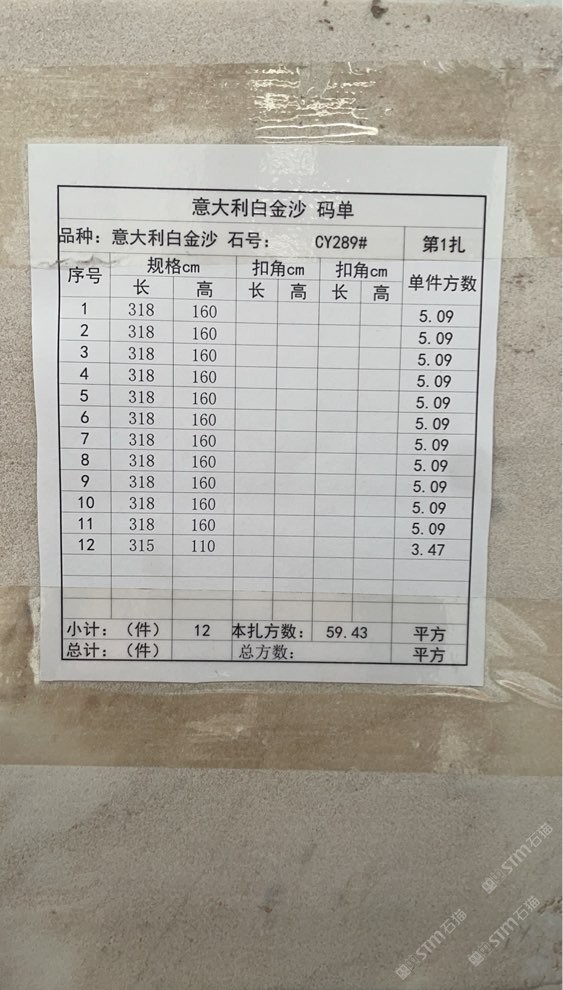 意大利白金沙 码单
品种：意大利白金沙 石号： CY289# 第1扎
序号 规格cm 扣角cm 扣角cm 单件方数
长 高 长 高 长 高
1 318 160 5.09
2 318 160 5.09
3 318 160 5.09
4 318 160 5.09
5 318 160 5.09
6 318 160 5.09
7 318 160 5.09
8 318 160 5.09
9 318 160 5.09
10 318 160 5.09
11 318 160 5.09
12 315 110 3.47
小计：（件） 12 本扎方数： 59.43 平方
总计：（件） 总方数： 平方
STM石猫
STM石猫
STM石猫